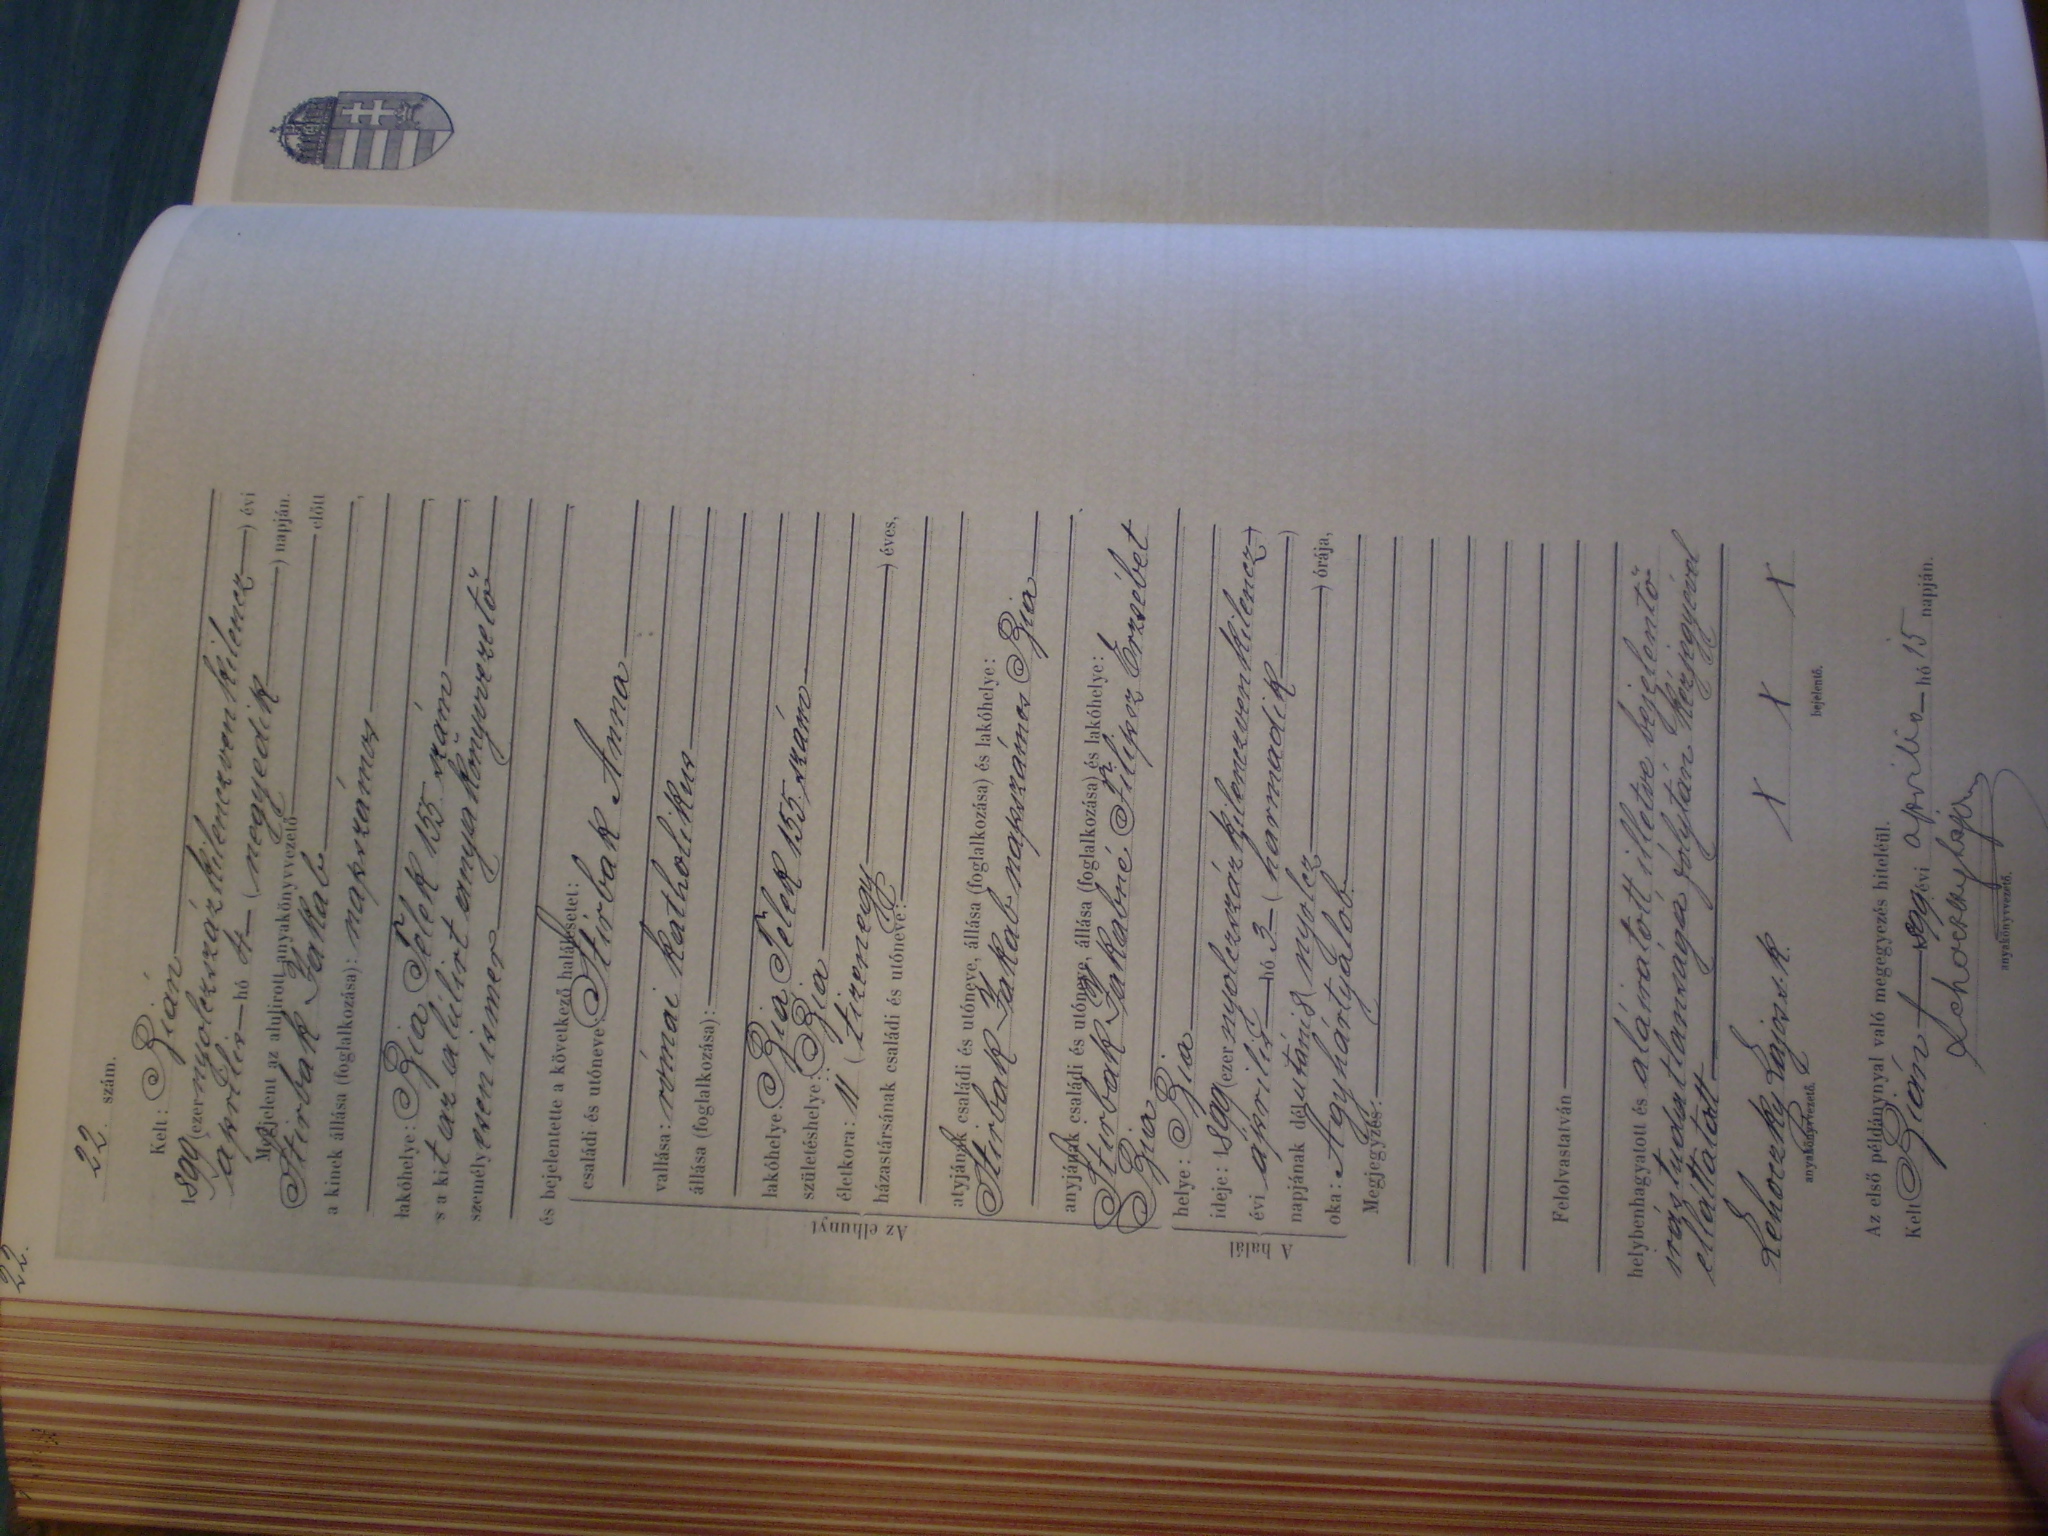 22.
22. szám.
Kelt: Bián
1899 (ezernyolczszázkilenczvenkilencz) évi
április hó 4 (negyedik) napján.
Megjelent az alulirott anyakönyvvezető előtt
Stirbak Jakab
a kinek állása (foglalkozása): napszámos,
lakóhelye: Bia Telek 155 szám,
s a kit az alulirt anyakönyvvezető
személyesen ismer
és bejelentette a következő halálesetet:
Az elhunyt
családi és utóneve: Stirbak Anna
vallása: római katholikus
állása (foglalkozása):
lakóhelye: Bia Telek 155. szám
születéshelye: Bia
életkora: 11 (tizenegy) éves,
házastársának családi és utóneve:
atyjának családi és utóneve, állása (foglalkozása) és lakóhelye:
Stirbak Jakab napszámos Bia
anyjának családi és utóneve, állása (foglalkozása) és lakóhelye:
Stirbak Jakabné Erzsébet
Bia
A halál
helye: Bia
ideje: 1899 (ezernyolczszázkilenczvenkilencz)
évi április hó 3 (harmadik)
napjának délutáni 8 (nyolcz) órája,
oka: Agyhártyalob.
Megjegyzés:
Felolvastatván
helybenhagyatott és aláíratott illetve bejelentő
irástudatlansága folytán kézjegyével
elláttatott
Lehoczky Lajos s.k. X X X
anyakönyvvezető. bejelentő.
Az első példánynyal való megegyezés hiteléül.
Kelt Bián 1899 évi április hó 15 napján.
Lehoczky Lajos
anyakönyvvezető.